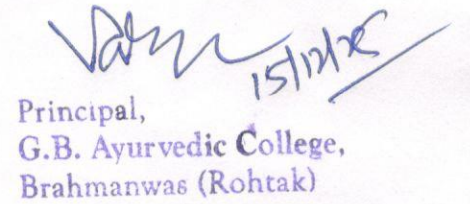 15/12/25
Principal,
G.B. Ayurvedic College,
Brahmanwas (Rohtak)